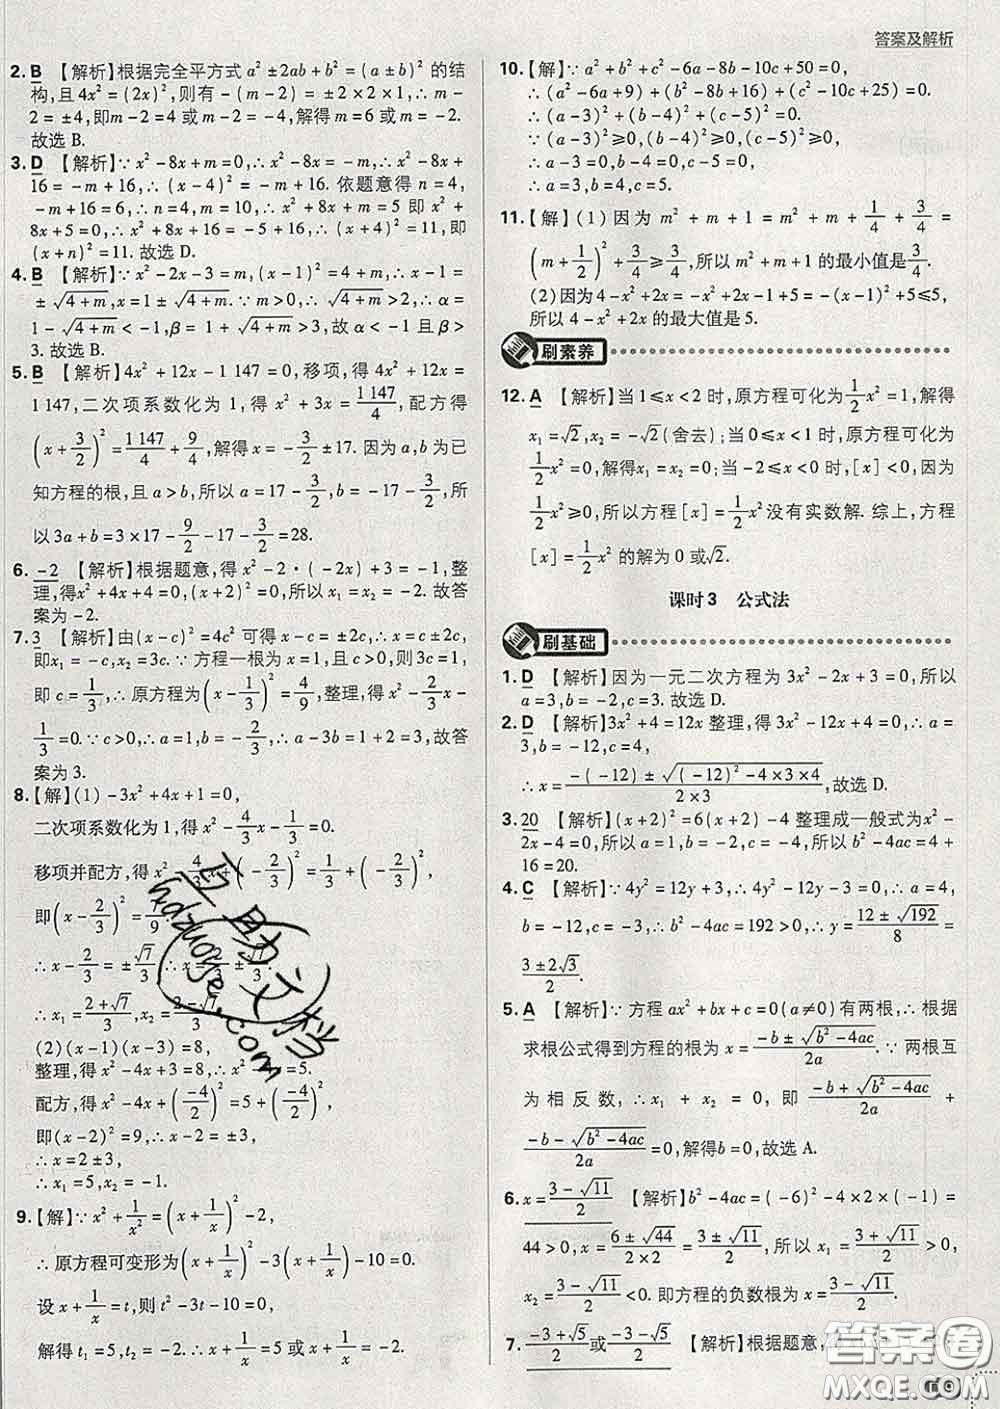 答案及解析
2. B 【解析】根据完全平方式 a² ± 2ab + b² = (a ± b)² 的结
构,且 4x² = (2x)²,则有 -(m-2) = ±2×2×1,∴ m-
2 = ±4,即m-2=4 或 m-2=-4,解得 m=6 或 m=-2.
故选 B.
3. D 【解析】∵ x²-8x+m=0,∴ x²-8x=-m,∴ x²-8x+
16=-m+16,∴ (x-4)²=-m+16. 依题意得 n=4,
-m+16=6,∴ n=4,m=10,∴ x²+8x+m=5 即 x²+
8x+5=0,∴ x²+8x+16=-5+16,∴ (x+4)²=11,即
(x+n)²=11. 故选 D.
4. B 【解析】∵ x²-2x-3=m,(x-1)²=4+m,∴ x-1=
±√(4+m),x=1±√(4+m). ∵ m>0,∴ √(4+m)>2,∴ α=
1-√(4+m)<-1,β=1+√(4+m)>3,故 α<-1 且 β>
3. 故选 B.
5. B 【解析】4x²+12x-1 147=0,移项,得 4x²+12x=
1 147,二次项系数化为 1,得 x²+3x=1 147/4,配方得
(x+3/2)²=1 147/4+9/4,解得 x+3/2=±17. 因为 a,b 为已
知方程的根,且 a>b,所以 a=17-3/2,b=-17-3/2,所
以 3a+b=3×17-9/2-17-3/2=28.
6. -2 【解析】根据题意,得 x²-2·(-2x)+3=-1,整
理,得x²+4x+4=0,(x+2)²=0,所以x₁=x₂=-2. 故答
案为-2.
7. 3 【解析】由(x-c)²=4c² 可得 x-c=±2c,∴ x=c±2c,
即x₁=-c,x₂=3c. ∵ 方程一根为 1,且 c>0,则 3c=1,
即 c=1/3,∴ 原方程为(x-1/3)²=4/9,整理,得 x²-2/3x-
1/3=0. ∵ c>0,∴ a=1,b=-2/3,∴ a-3b=1+2=3,故答
案为 3.
8. 【解】(1) -3x²+4x+1=0,
二次项系数化为 1,得 x²-4/3x-1/3=0.
移项并配方,得 x²-4/3x+(-2/3)²=1/3+(-2/3)²,
即(x-2/3)²=7/9.
∴ x-2/3=±√7/3,∴ x=2/3±√7/3,
∴ x₁=(2+√7)/3,x₂=(2-√7)/3.
(2)(x-1)(x-3)=8,
整理,得 x²-4x+3=8,∴ x²-4x=5.
配方,得 x²-4x+(-4/2)²=5+(-4/2)²,
即(x-2)²=9,∴ x-2=±3,
∴ x=2±3,
∴ x₁=5,x₂=-1.
9. 【解】∵ x²+1/x²=(x+1/x)²-2,
∴ 原方程可变形为(x+1/x)²-3(x+1/x)-10=0.
设 x+1/x=t,则 t²-3t-10=0,
解得 t₁=5,t₂=-2,∴ x+1/x=5 或 x+1/x=-2.
10. 【解】∵ a²+b²+c²-6a-8b-10c+50=0,
∴ (a²-6a+9)+(b²-8b+16)+(c²-10c+25)=0.
∴ (a-3)²+(b-4)²+(c-5)²=0.
∵ (a-3)²≥0,(b-4)²≥0,(c-5)²≥0,
∴ a-3=0,b-4=0,c-5=0,
∴ a=3,b=4,c=5.
11. 【解】(1) 因为 m²+m+1=m²+m+1/4+3/4=
(m+1/2)²+3/4≥3/4,所以 m²+m+1 的最小值是3/4.
(2)因为 4-x²+2x=-x²+2x-1+5=-(x-1)²+5≤5,
所以 4-x²+2x 的最大值是 5.
刷素养
12. A 【解析】当 1≤x<2 时,原方程可化为1/2x²=1,解得
x₁=√2,x₂=-√2(舍去);当 0≤x<1 时,原方程可化为
1/2x²=0,解得x₁=x₂=0;当-2≤x<0 时,[x]<0,因为
1/2x²≥0,所以方程[x]=1/2x²没有实数解. 综上,方程
[x]=1/2x² 的解为 0 或√2.
课时 3 公式法
刷基础
1. D 【解析】因为一元二次方程为 3x²-2x+3=0,所以
a=3,b=-2,c=3. 故选 D.
2. D 【解析】3x²+4=12x 整理,得 3x²-12x+4=0,∴ a=
3,b=-12,c=4,
∴ x=(-(-12)±√((-12)²-4×3×4))/(2×3),故选 D.
3. 20 【解析】(x+2)²=6(x+2)-4 整理成一般式为 x²-
2x-4=0,所以 a=1,b=-2,c=-4,所以 b²-4ac=4+
16=20.
4. C 【解析】∵ 4y²=12y+3,∴ 4y²-12y-3=0,∴ a=4,
b=-12,c=-3,∴ b²-4ac=192>0,∴ y=(12±√192)/8=
(3±2√3)/2.
5. A 【解析】∵ 方程 ax²+bx+c=0(a≠0)有两根,∴ 根据
求根公式得到方程的根为 x=(-b±√(b²-4ac))/2a. ∵ 两根互
为相反数,∴ x₁+x₂=0,即 (-b+√(b²-4ac))/2a +
(-b-√(b²-4ac))/2a=0,解得b=0,故选 A.
6. x=(3-√11)/2 【解析】b²-4ac=(-6)²-4×2×(-1)=
44>0,x=(6±√44)/(2×2)=(3±√11)/2,所以 x₁=(3+√11)/2>0,
x₂=(3-√11)/2<0. 即方程的负数根为 x=(3-√11)/2.
7. (-3+√5)/2或(-3-√5)/2 【解析】根据题意,得
互助文档
hdzuoye.com
答案圈
MXQE.COM